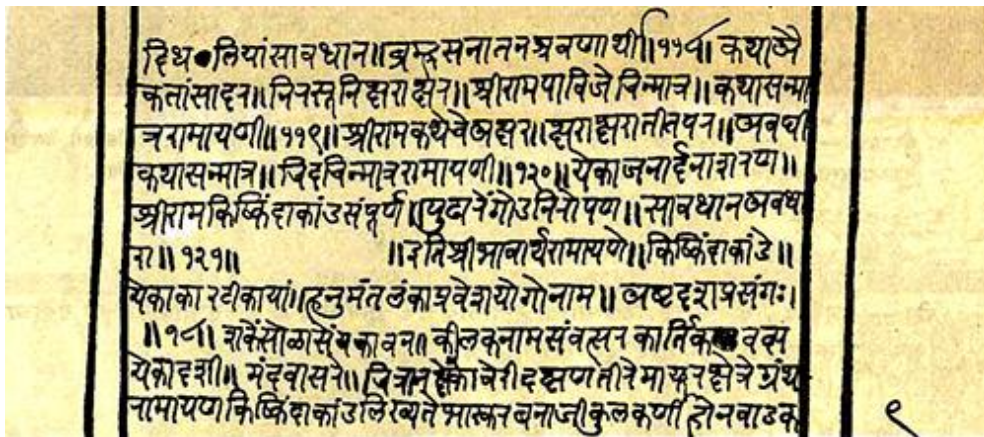 दिथ लियांसावधान॥ब्रम्हसनातनश्रवणार्थी॥११८॥ कथाऽअै
कतांसादर॥निरसूनिक्षराक्षर॥श्रीरामपाविजेचिन्मात्र॥कथासन्मा
त्ररामायणी॥११९॥श्रीरामकथेचेंअक्षर॥क्षराक्षरातीतपर॥अवघी
कथासन्मात्र॥चिदचिन्मात्ररामायणी॥१२०॥येकाजनार्दनाशरण॥
श्रीरामकिष्किंदाकांडसंपूर्ण॥पुढारेंगोडनिरोपण॥सावधानअवधा
रा॥१२१॥ ॥इतिश्रीभावार्थरामायणे॥किष्किंदाकांडे॥
येकाकारटीकायां॥हनुमंतलंकाप्रवेशयोगोनाम॥अष्टदशप्रसंगः।
॥१८॥ शकेसोळासें कीलकनामसंवत्सर कार्तिक वद्य
येकादशी॥ मंदवासरे॥चित्रा कावेरीदक्षणतीरेमायूरक्षेत्रे ग्रंथ
रामायणकिष्किंदाकांडलिख्यते भास्करबनाजीकुलकर्णी होनवाडक
९